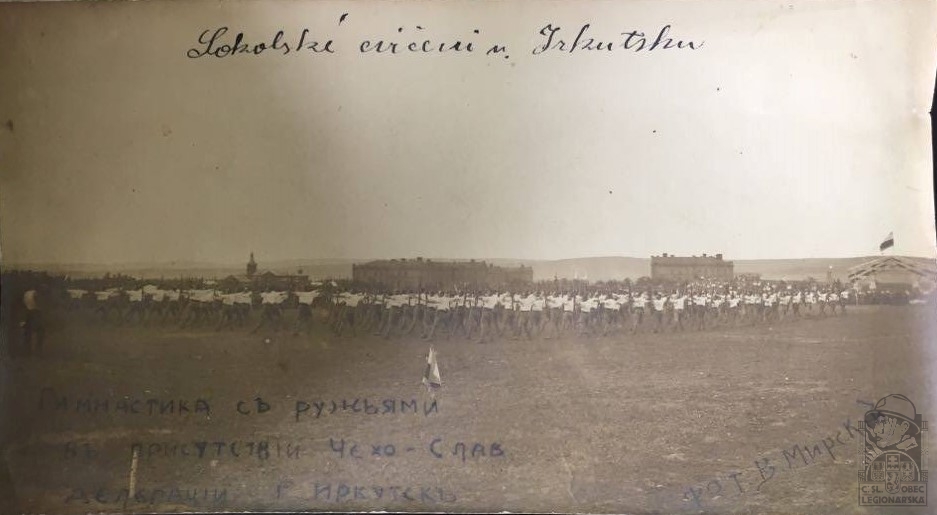 Sokolské cvičení v Irkutsku
Гимнастика съ ружьями
въ присутствіи Чехо-Слав
Делегаціи г Иркутскъ
фот В. Мирскій
Č. SL. OBEC
LEGIONÁŘSKÁ